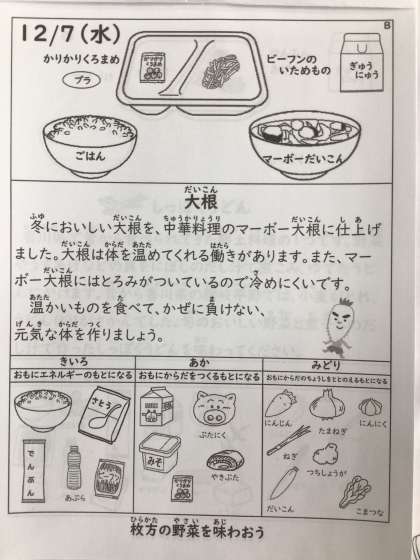 12/7（水）
B
かりかりくろまめ
プラ
ビーフンの
いためもの
ぎゅう
にゅう
ごはん
マーボーだいこん
だいこん
大根
ふゆ だいこん ちゅうかりょうり だいこん しあ
冬においしい大根を、中華料理のマーボー大根に仕上げ
だいこん からだ あたた はたら
ました。大根は体を温めてくれる働きがあります。また、マー
だいこん さ
ボー大根にはとろみがついているので冷めにくいです。
あたた た ま
温かいものを食べて、かぜに負けない、
げんき からだ つく
元気な体を作りましょう。
きいろ
あか
みどり
おもにエネルギーのもとになる
おもにからだをつくるもとになる
おもにからだのちょうしをととのえるもとになる
さとう
でんぷん
あぶら
ぶたにく
みそ
やきぶた
にんじん
たまねぎ
にんにく
ねぎ
つちしょうが
だいこん
こまつな
ひらかた やさい あじ
枚方の野菜を味わおう